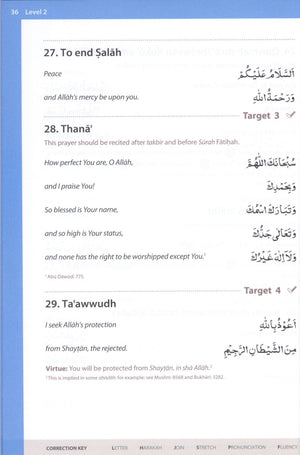 36 Level 2
27. To end Ṣalāh
Peace اَلسَّلَامُ عَلَيْكُمْ
and Allāh's mercy be upon you. وَرَحْمَةُ اللهِ
Target 3
28. Thanā'
This prayer should be recited after takbīr and before Sūrah Fātiḥah.
How perfect You are, O Allāh, سُبْحَانَكَ اللّٰهُمَّ
and I praise You! وَبِحَمْدِكَ
So blessed is Your name, وَتَبَارَكَ اسْمُكَ
and so high is Your status, وَتَعَالٰى جَدُّكَ
and none has the right to be worshipped except You.¹ وَلَآ اِلٰهَ غَيْرُكَ
¹ Abū Dāwūd: 775.
Target 4
29. Ta'awwudh
I seek Allāh's protection اَعُوْذُ بِاللهِ
from Shayṭān, the rejected. مِنَ الشَّيْطَانِ الرَّجِيْمِ
Virtue: You will be protected from Shayṭān, in shā Allāh.²
² This is implied in some aḥādīth for example: see Muslim: 8068 and Bukhārī: 3282.
CORRECTION KEY LETTER HARAKAH JOIN STRETCH PRONUNCIATION FLUENCY